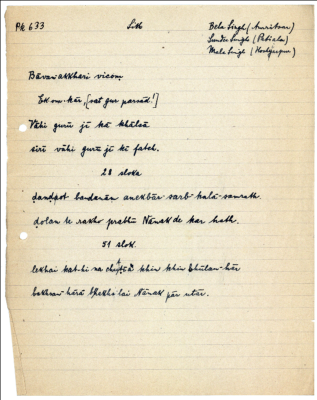 PK 633 Sikh Bela Singh (Amritsar)
Sunder Singh (Patiala)
Mala Singh (Hoshyarpur)
Bāvan akkhari vicoṃ
Ek om-kār, [sat gur parsād!]
Vāhi gurū jī kā khālsā
sirī vāhi gurū jī kī fateh.
28 sloka
ḍanḍaot bandanān anekbār sarb kalā samrath.
ḍolan te rakho prabhū Nānak de kar hath.
51 slok.
lekhai kat-hi na khin khin bhūlan-hār
bakhsan-hārā lai Nānak pār utār.